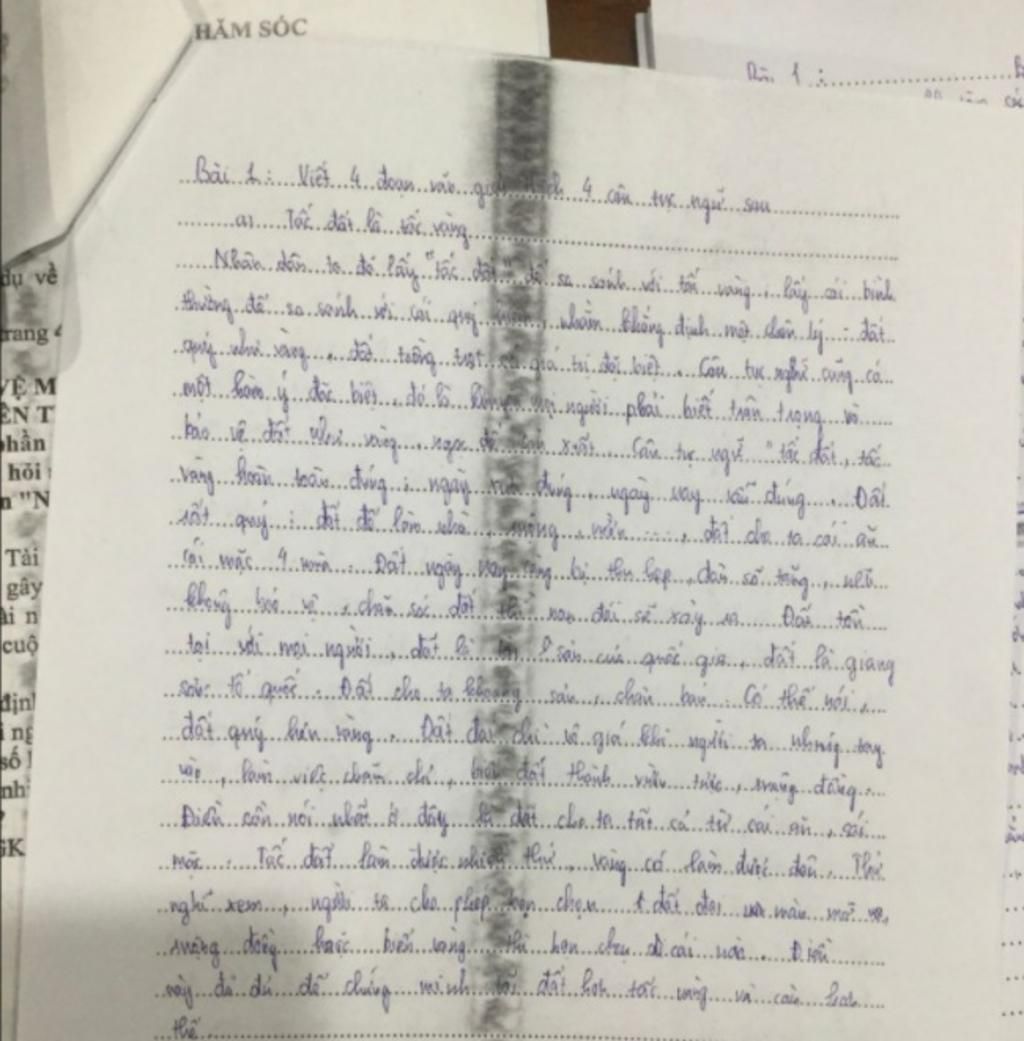 HĂM SÓC
Bài 1 :
dụ về
trang
VỆ M
ÊN T
phần
hỏi
n "N
Tải
gây
ài n
cuộ
định
i ng
số
nh
GK
Bài 1 : Viết 4 đoạn văn 4 câu tục ngữ sau
a) Tấc đất là tấc vàng
Nhân dân ta đó lấy "tấc đất" để so sánh với tấc vàng, lấy cái bình
thường để so sánh với cái quý nhằm khẳng định một chân lý : đất
quý như vàng, đất trồng trọt có giá trị đặc biệt. Câu tục nghữ cũng có
một hàm ý đặc biệt, đó là mọi người phải biết trân trọng và
bảo vệ đất như vàng, ngọc để sản xuất. Câu tục ngữ "tấc đất, tấc
vàng hoàn toàn đúng : ngày đúng, ngày nay vẫn đúng. Đất
rất quý : đất để làm nhà, vườn ..., đất cho ta cái ăn
cái mặc 4 mùa. Đất ngày bị thu hẹp, dân số tăng, nếu
không bảo vệ, chăm sóc đất thì nạn đói sẽ xảy ra. Đất tồn
tại với mọi người, đất là sản của quốc gia, đất là giang
sơn tổ quốc. Đất cho ta khoáng sản, chăn Có thể nói,
đất quý hơn vàng. Đất đai chỉ vô giá khi người ta nhúng tay
vào, làm việc chăm chỉ, biến đất thành vườn tược, ruộng đồng.
Điều cần nói nhất ở đây là đất cho ta tất cả từ cái ăn, cái
mặc. Tấc đất làm được nhiều thứ, vàng có làm được đâu. Thử
nghĩ xem, người ta cho phép bạn chọn 1 đất đai màu mỡ
ruộng đồng hoặc biển vàng thì bạn chọn cái nào. Điều
này đã đủ để chứng minh đất hơn tấc vàng và còn hơn
thế